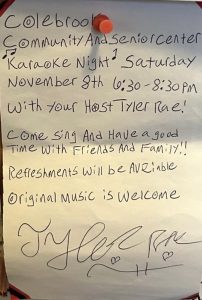 Colebrook
Community And Senior center
♪Karaoke Night♪ Saturday
November 8th 6:30-8:30pm
With your Host Tyler Rae!
Come Sing And Have a good
Time With Friends And Family!!
Refreshments will be Avaliable
Original Music is Welcome
Tyler Rae